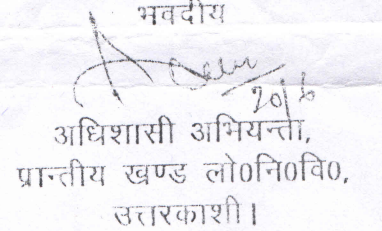 भवदीय
20/6
अधिशासी अभियन्ता,
प्रान्तीय खण्ड लो0नि0वि0,
उत्तरकाशी।